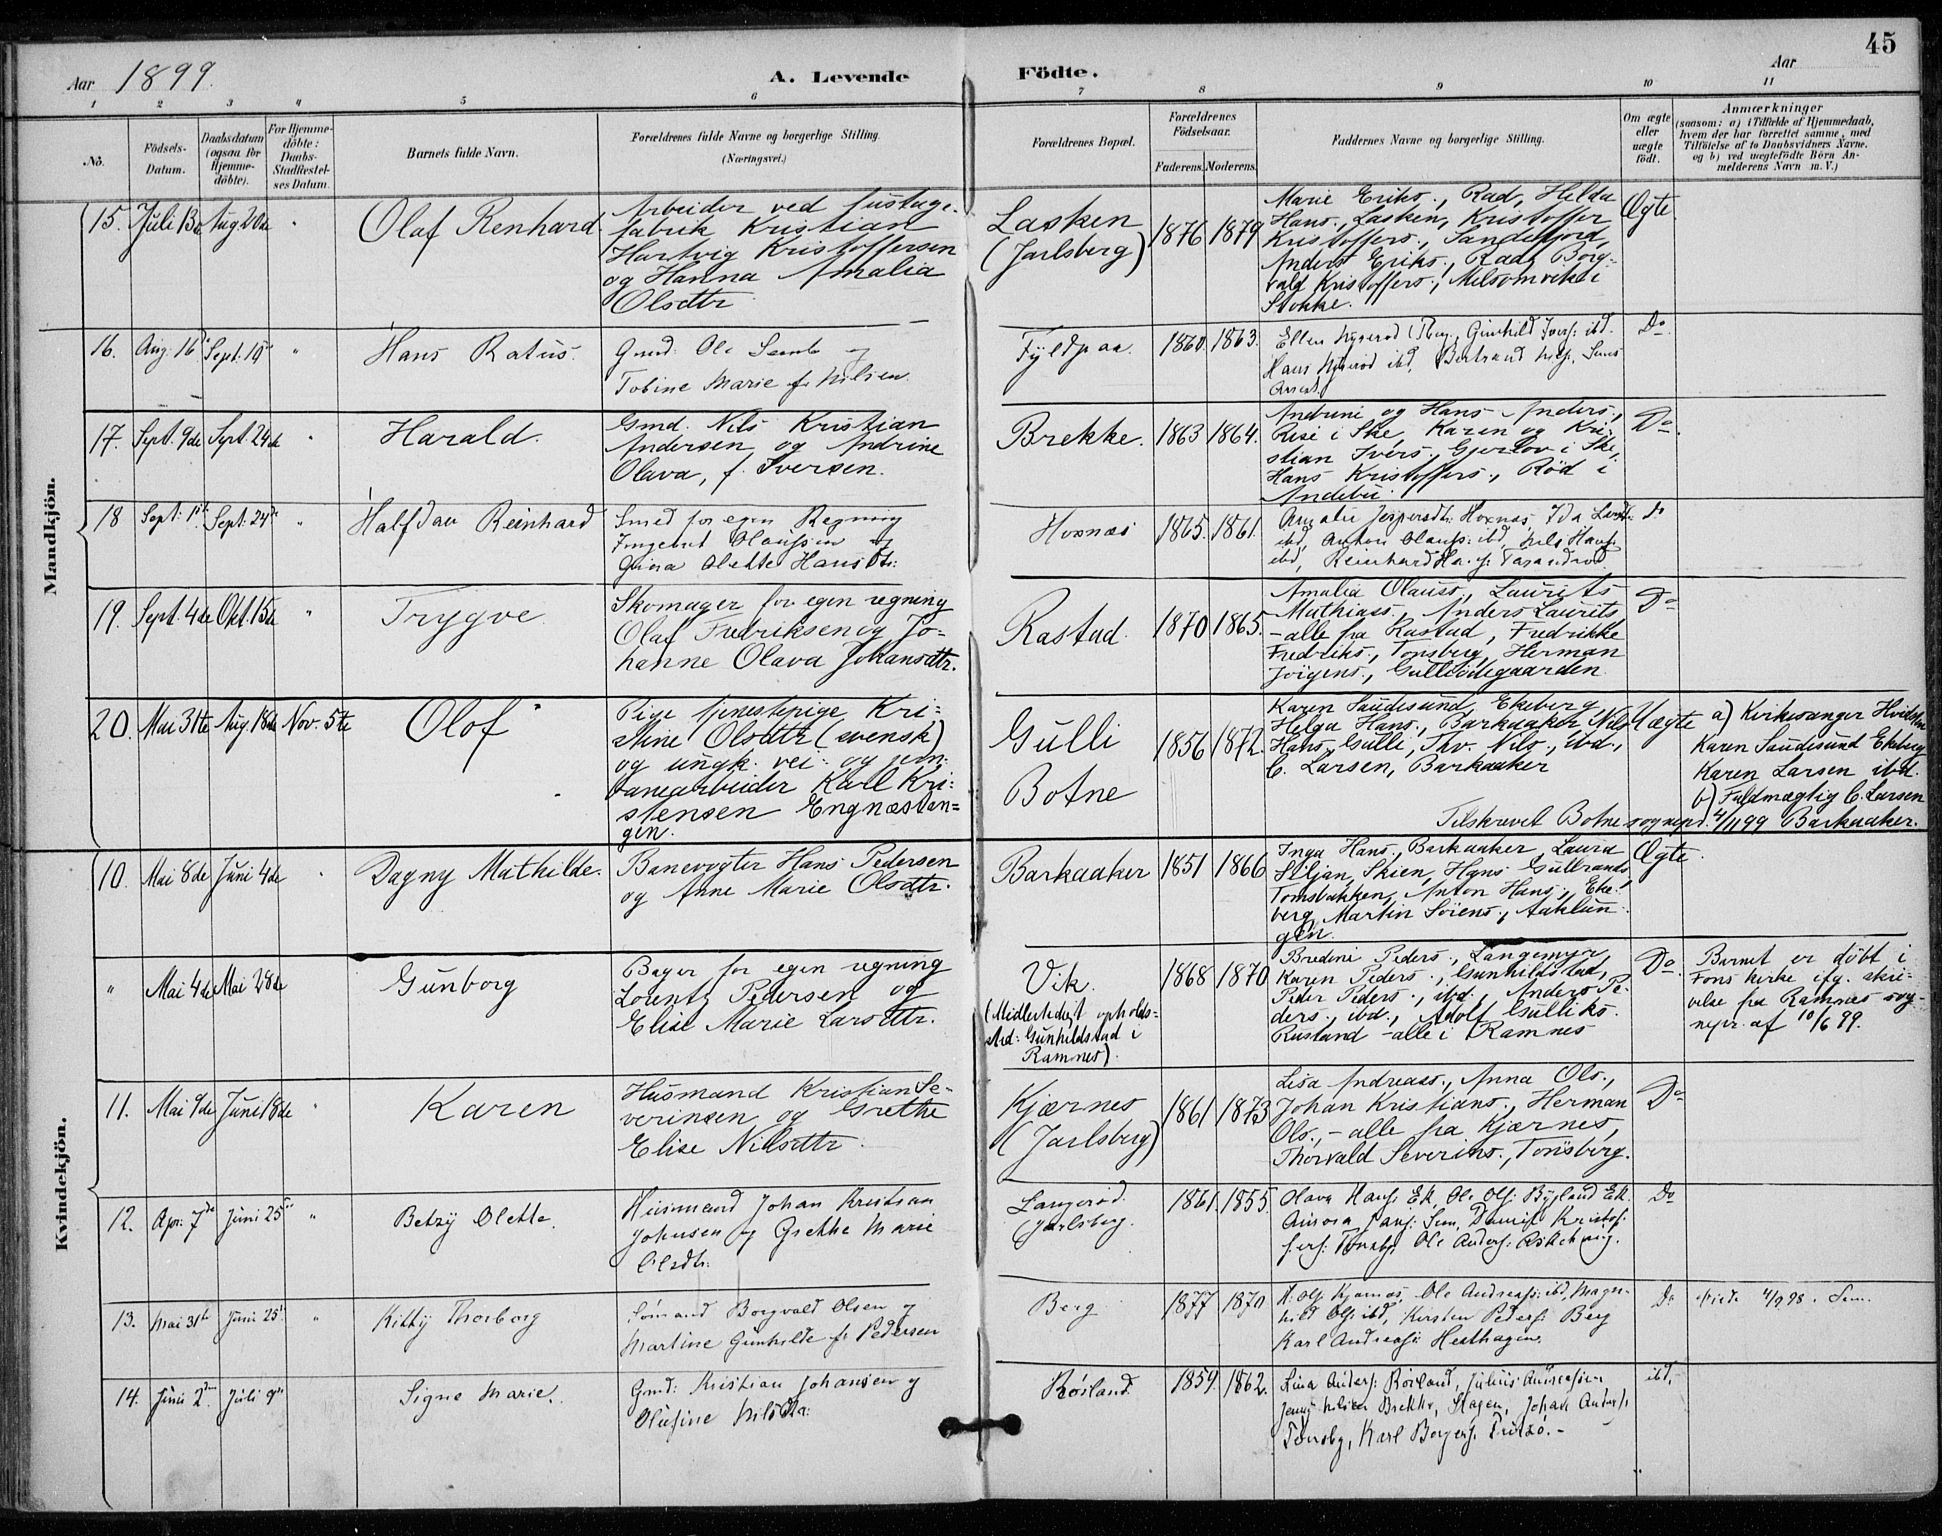 45
Aar 1899.
A. Levende Födte.
Aar
1 2 3 4 5 6 7 8 9 10 11
No.
Födsels-Datum.
Daabsdatum (ogsaa for Hjemme-döbte).
For Hjemme-döbte: Daabs-Stadfæstel-ses Datum.
Barnets fulde Navn.
Forældrenes fulde Navne og borgerlige Stilling. (Næringsvei.)
Forældrenes Bopæl.
Forældrenes Födselsaar.
Faderens. Moderens.
Faddernes Navne og borgerlige Stilling.
Om ægte eller uægte födt.
Anmærkninger
(saasom: a) i Tilfælde af Hjemmedaab,
hvem der har forrettet samme, med
Tilföielse af to Daabsvidners Navne.
og b) ved uægtefödte Börn An-
melderens Navn m. V.)
Mandkjön.
15. Juli 13de Aug 20de "
Olaf Renhard
Arbeider ved fustage-
fabrik Kristian
Hartvig Kristoffersen
og Hanna Amalia
Olsdtr
Lasken
(Jarlsberg)
1876 1879
Marie Eriks., Rad, Helda
Hans., Lasken, Kristoffer
Kristoffers., Sandefjord,
Anders Eriks., Rad, Borg-
vald Kristoffers., Melsomvik i
Stokke.
Ægte
16. Aug. 16 Sept. 19 "
Hans Ratus.
Gmd: Ole Semb og
Tobine Marie f. Nilsen
Fyldpaa.
1860. 1863.
Do
17. Sept. 9de Sept. 24de "
Harald.
Gmd. Nils Kristian
Andersen og Andrine
Olava, f. Iversen.
Brekke.
1863 1864.
og Hans Anders.,
i Ske, Karen og Kri-
stian Ivers., i Ske,
Hans Kristoffers., Röd i
Andebu.
Do.
18 Sept. Sept: 24de "
Halfdan Reinhard
Smed for egen Regning
Ingebret Olaussen og
Olette Hansdtr:
Hoxnæs
1865. 1861.
Amalie Jespersdtr: Hoxnæs, Ida
ibd, Anton Olaus: ibd, Nils Hans:
ibd, Reinhard
Do
19. Sept. 4de Okt. 15de "
Trygve
Skomager for egen regning
Olaf Fredriksen og Jo-
hanne Olava Johansdtr.
Rastad.
1870 1865.
Amalia Olauss., Laurits
Mathiass., Anders Laurits
-alle fra Rastad, Fredrikke
Fredriks., Tönsberg, Herman
Jörgens., Gulliödegaarden
Do
20. Mai 31te Aug. 18de Nov. 5te
Olof
Pige tjenestepige Kri-
stine Olsdttr (svensk)
og ungk. vei- og jern-
banearbeider Karl Kri-
stensen Engnæstan-
gen.
Gulli
Botne
1856 1872.
Karen Saudisund, Ekeberg,
Helga Hans., Barkaaker, Nils
Hans. Gulli, Thv. Nils., ibd,
C. Larsen, Barkaaker
Tilskrevet Botne sognepr. 4/11 99
Uægte
a) Kirkesanger Hvidsten
Karen Saudisund Ekeberg
Karen Larsen ibd.
b) Fuldmægtig C. Larsen
Barkaaker.
Kvindekjön.
10. Mai 8de Juni 4de "
Dagny Mathilde.
Banevogter Hans Pedersen
og Anne Marie Olsdtr.
Barkaaker
1851 1866
Inga Hans., Barkaaker, Laura
Siljan, Skien, Hans Gulbrands.,
Tomsbakken, Anton Hans., Eke-
berg, Martin Sörens., Aaklun-
gen.
Ægte.
" Mai 4de Mai 28de
Gunborg
Bager for egen regning
Lorentz Pedersen og
Elise Marie Larsdttr.
Vik.
(Midlertidigt opholds-
sted: Gunhildstad i
Ramnes).
1868 1870
Bredine Peders., Langemyr,
Karen Peders., Gunhildstad,
Peder Peders., ibd., Anders Pe-
ders., ibd., Adolf Gulliks.
Rustand -alle i Ramnes
Do.
Barnet er döbt i
Fons kirke ifg. skri-
velse fra Ramnes sog-
nepr. af 10/6 99.
11. Mai 9de Juni 18de "
Karen
Husmand Kristian Se-
verinsen og Grethe
Elise Nilsdttr.
Kjærnes
(Jarlsberg)
1861 1873
Lisa Andreass., Anna Ols.,
Johan Kristians., Herman
Ols., -alle fra Kjærnes,
Thorvald Severins., Tönsberg.
Do
12. Apr: 7de Juni 25de "
Betzy Olette.
Husmand Johan Kristian
Johnsen og Grethe Marie
Olsdtr:
Langeröd.
(Jarlsberg.
1861. 1855.
Olava Hans: Ek, Ole Ols: Bygland Ek.
Aurora Hans: Sem, Kristof-
fers: Tönsbg, Ole Anders:
Do
13. Mai 31te Juni 25 "
Kitty Thorborg
Sömand Borgvald Olsen og
Martine Gunhilde f. Pedersen
Berg
1877 1870
Ols: Kjærnæs, Ole Andreas: ibd, Magn-
hild Ols: ibd, Kirsten Peders: Berg
Karl Andreas: Hesthagen,
Do
Viede 4/9 98. Sem.
14. Juni 2den Juli 9de
Signe Marie.
Gmd: Kristian Johansen og
Olufine Nilsdtr:
Röisland
1859. 1862.
Lina Anders: Röisland, Julius Andreassen
Jenny Nilsen Brekke, Slagen, Johan Anders:
Tönsbg, Karl Borgers:
ibd.